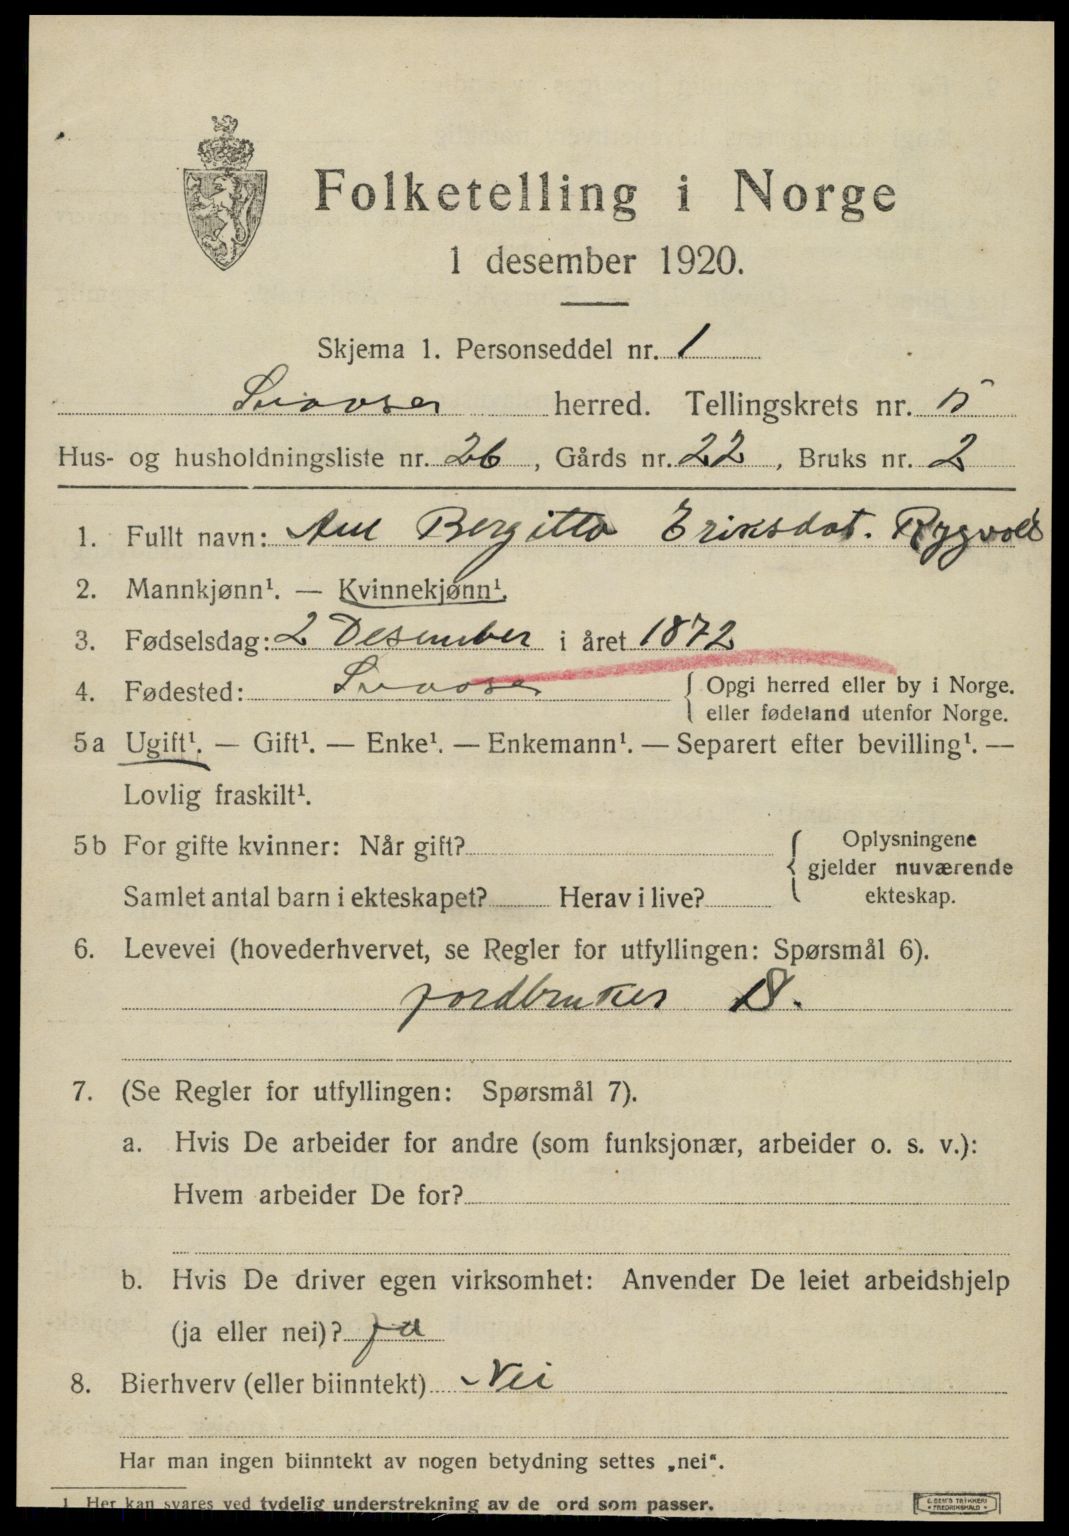 Folketelling i Norge
1 desember 1920.
Skjema 1. Personseddel nr. 1
herred. Tellingskrets nr. 5
Hus- og husholdningsliste nr. 26, Gårds nr. 22, Bruks nr. 2
1. Fullt navn: Ane Bergitta Eriksdat. Rygvold
2. Mannkjønn¹. — Kvinnekjønn¹.
3. Fødselsdag: 2 Desember i året 1872
4. Fødested: { Opgi herred eller by i Norge.
eller fødeland utenfor Norge.
5a Ugift¹. — Gift¹. — Enke¹. — Enkemann¹. — Separert efter bevilling¹. —
Lovlig fraskilt¹.
5b For gifte kvinner: Når gift? { Oplysningene
gjelder nuværende
Samlet antal barn i ekteskapet? Herav i live? ekteskap.
6. Levevei (hovederhvervet, se Regler for utfyllingen: Spørsmål 6).
jordbruker S.
7. (Se Regler for utfyllingen: Spørsmål 7).
a. Hvis De arbeider for andre (som funksjonær, arbeider o. s. v.):
Hvem arbeider De for?
b. Hvis De driver egen virksomhet: Anvender De leiet arbeidshjelp
(ja eller nei)? Ja
8. Bierhverv (eller biinntekt) Nei
Har man ingen biinntekt av nogen betydning settes „nei“.
1 Her kan svares ved tydelig understrekning av de ord som passer.